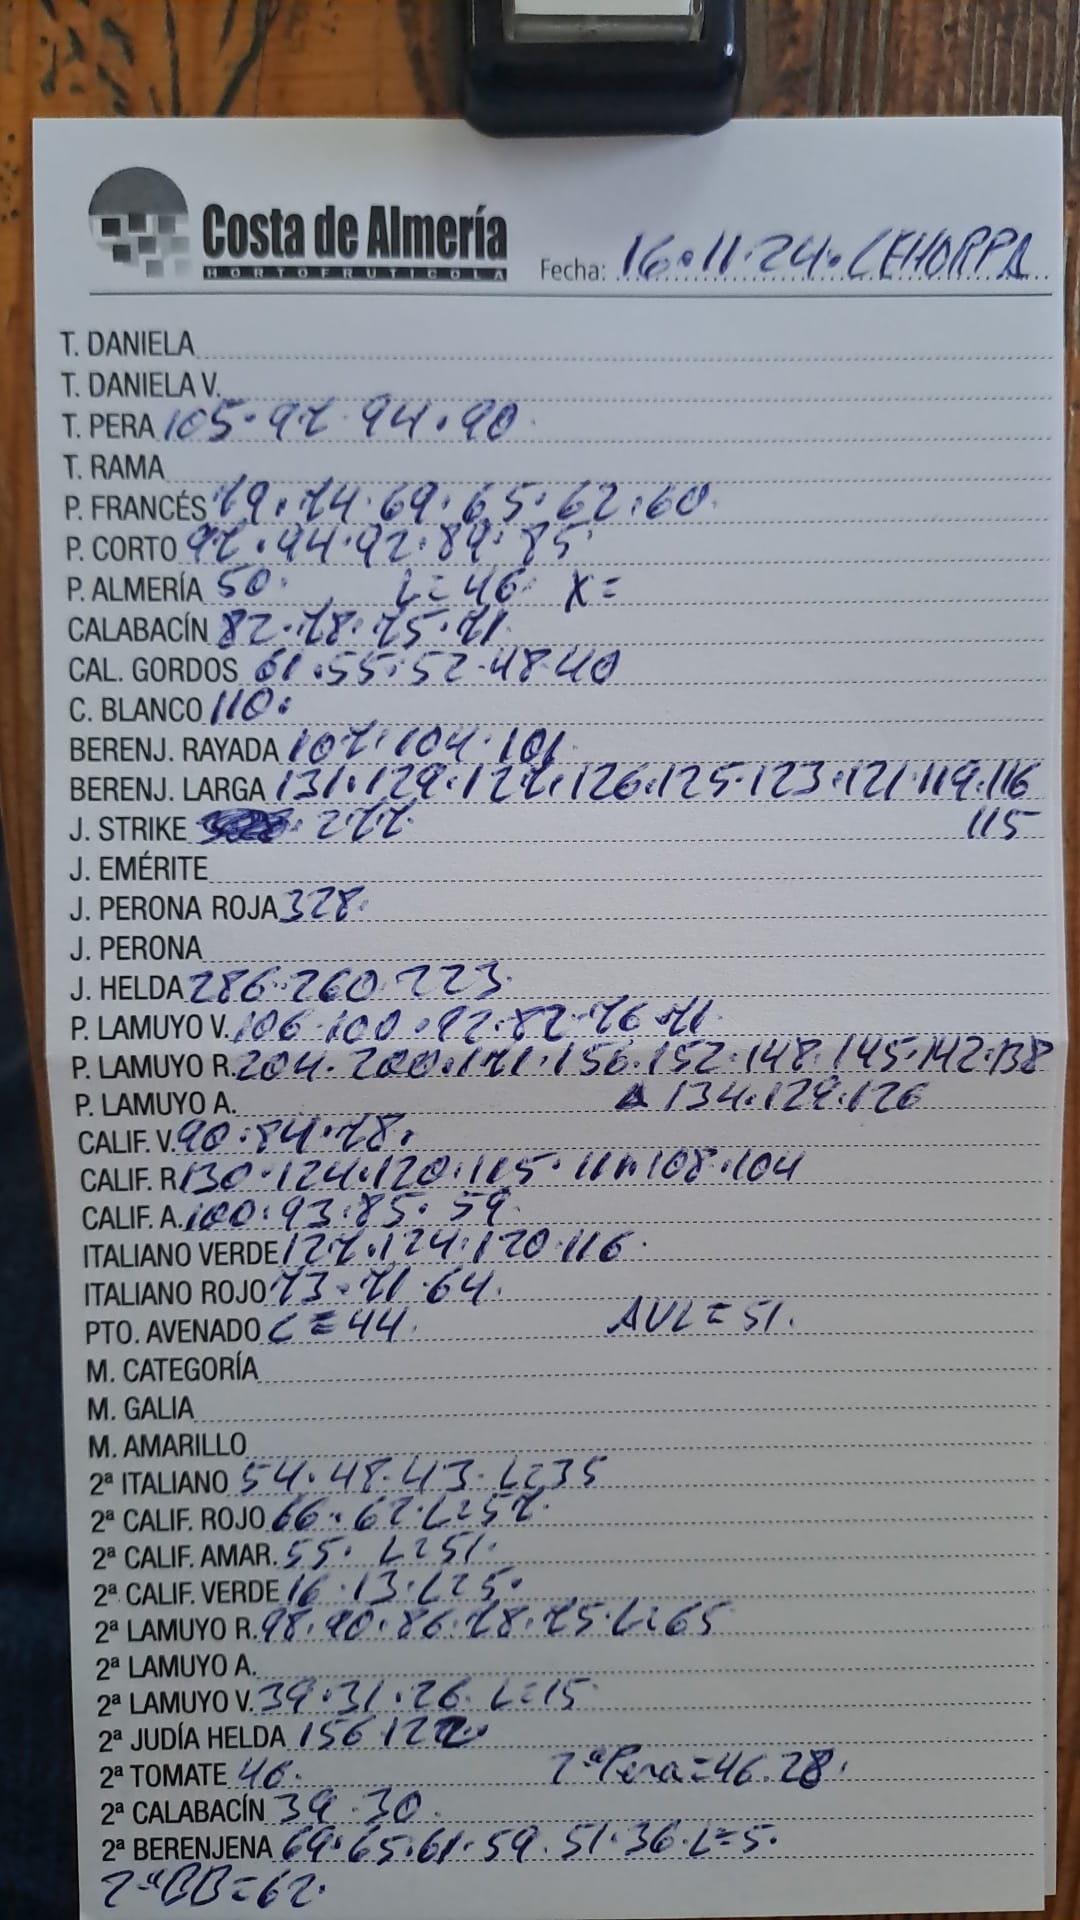 Costa de Almería
HORTOFRUTICOLA
Fecha: 16.11.24. CEHORPA
T. DANIELA
T. DANIELA V.
T. PERA 105.97.94.90
T. RAMA
P. FRANCÉS 79.74.69.65.62.60
P. CORTO 97.94.92.89.85
P. ALMERÍA 50. L=46 X=
CALABACÍN 82.78.75.71
CAL. GORDOS 61.55.52.48 40
C. BLANCO 110.
BERENJ. RAYADA 107.104.101
BERENJ. LARGA 131.129.127.126.125.123.121.119.116
J. STRIKE 277. 115
J. EMÉRITE
J. PERONA ROJA 328.
J. PERONA
J. HELDA 286.260 223.
P. LAMUYO V. 106.100.92.82.76.71
P. LAMUYO R. 204.200.171.156.152.148.145.142.138
P. LAMUYO A. 134.129.126
CALIF. V. 90.84.78.
CALIF. R 130.124.120.115. 108.104
CALIF. A. 100.93.85.59
ITALIANO VERDE 127.124.120 116.
ITALIANO ROJO 73.71.64.
PTO. AVENADO C=44. AVL=51.
M. CATEGORÍA
M. GALIA
M. AMARILLO
2ª ITALIANO 54.48.43.L=35
2ª CALIF. ROJO 66.62.L=57.
2ª CALIF. AMAR. 55. L=51.
2ª CALIF. VERDE 16.13.L=5.
2ª LAMUYO R. 98.90.86.78.75.L=65
2ª LAMUYO A.
2ª LAMUYO V. 39.31.26. L=15
2ª JUDÍA HELDA 156
2ª TOMATE 46. 2ªPera=46.28.
2ª CALABACÍN 39.30.
2ª BERENJENA 69.65.61.59.51.36.L=5.
2ªBB=62.